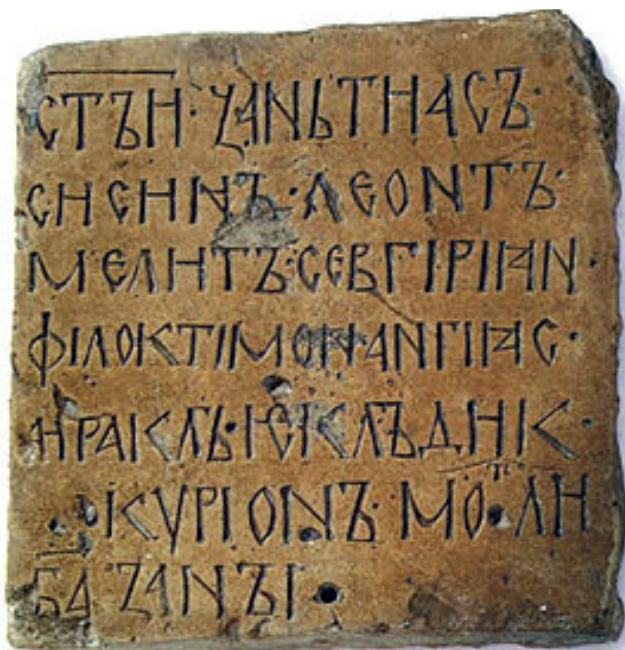 СТЪИ · ꙀАНЬТИАСЪ ·
СИСИНЪ · ЛЕОNТЪ ·
МЕЛИТЪ · СЕВГІРІꙖN ·
ФІЛОКТІМОN · АNГІꙖС ·
ИРАКЛЬ · ѤКЛЪДИК ·
КУРІОNЪ · МОЛИ
БА ꙀА NЪІ ·